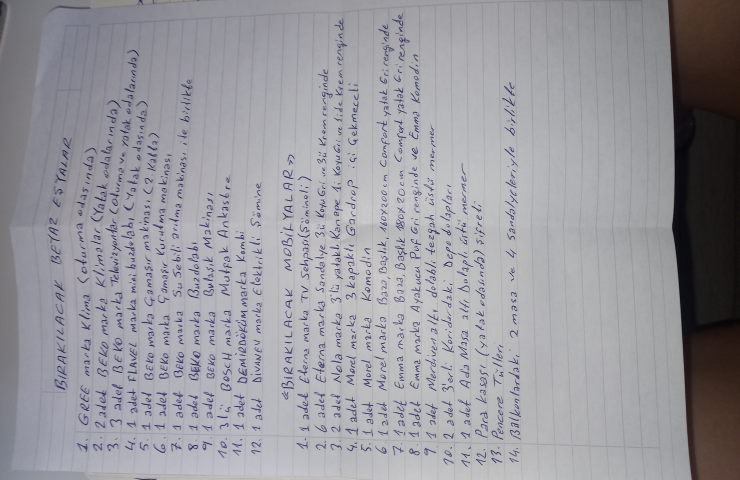 BIRAKILACAK BEYAZ EŞYALAR
1. GREE marka Klima (oturma odasında)
2. 2 adet BEKO marka Klimalar (Yatak odalarında)
3. 3 adet BEKO marka Televizyonlar (oturma ve yatak odalarında)
4. 1 adet FLAVEL marka mini buzdolabı (Yatak odasında)
5. 1 adet BEKO marka Çamaşır makinası (2. Katta)
6. 1 adet BEKO marka Çamaşır Kurutma makinası
7. 1 adet BEKO marka Su Sebili arıtma makinası ile birlikte
8. 1 adet BEKO marka Buzdolabı
9. 1 adet BEKO marka Bulaşık Makinası
10. 3lü BOSCH marka Mutfak Ankastre
11. 1 adet DEMİRDÖKÜM marka Kombi
12. 1 adet DIVANEV marka Elektrikli Şömine
"BIRAKILACAK MOBİLYALAR"
1. 1 adet Eterna marka TV Sehpası (Şömineli)
2. 6 adet Eterna marka Sandalye 3ü Koyu Gri ve 3ü Krem renginde
3. 2 adet Mola marka 3'lü yataklı Kanepe 1i Koyu Gri ve 1 i de Krem renginde
4. 1 adet Morel marka 3 kapaklı Gardrop içi Çekmeceli
5. 1 adet Morel marka Komodin
6. 1 adet Morel marka Baza, Başlık, 160x200cm Comfort yatak Gri renginde
7. 1 adet Emma marka Baza, Başlık 180x20cm Comfort yatak Gri renginde
8. 1 adet Emma marka Ayakucu Puf Gri renginde ve Emma Komodin
9. 1 adet Merdiven altı dolabı, tezgah üstü mermer
10. 2 adet 3'erli Koridordaki Depo dolapları
11. 1 adet Ada Masa altı Dolaplı üstü mermer
12. Para kasası (yatak odasında) şifreli
13. Pencere Tülleri
14. Balkonlardaki 2 masa ve 4 Sandalyeleriyle birlikte